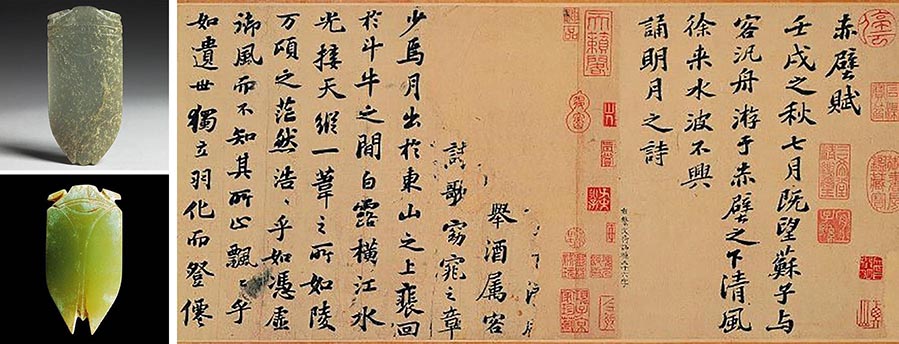 赤壁賦
壬戌之秋七月既望蘇子與
客汎舟游于赤壁之下清風
徐来水波不興
誦明月之詩
天籟閣
舉酒属客
歌窈窕之章
少焉月出於東山之上裴回
於斗牛之間白露横江水
光接天縱一葦之所如陵
万頃之茫然浩〻乎如憑虚
御風而不知其所止飄〻乎
如遺世獨立羽化而登僊